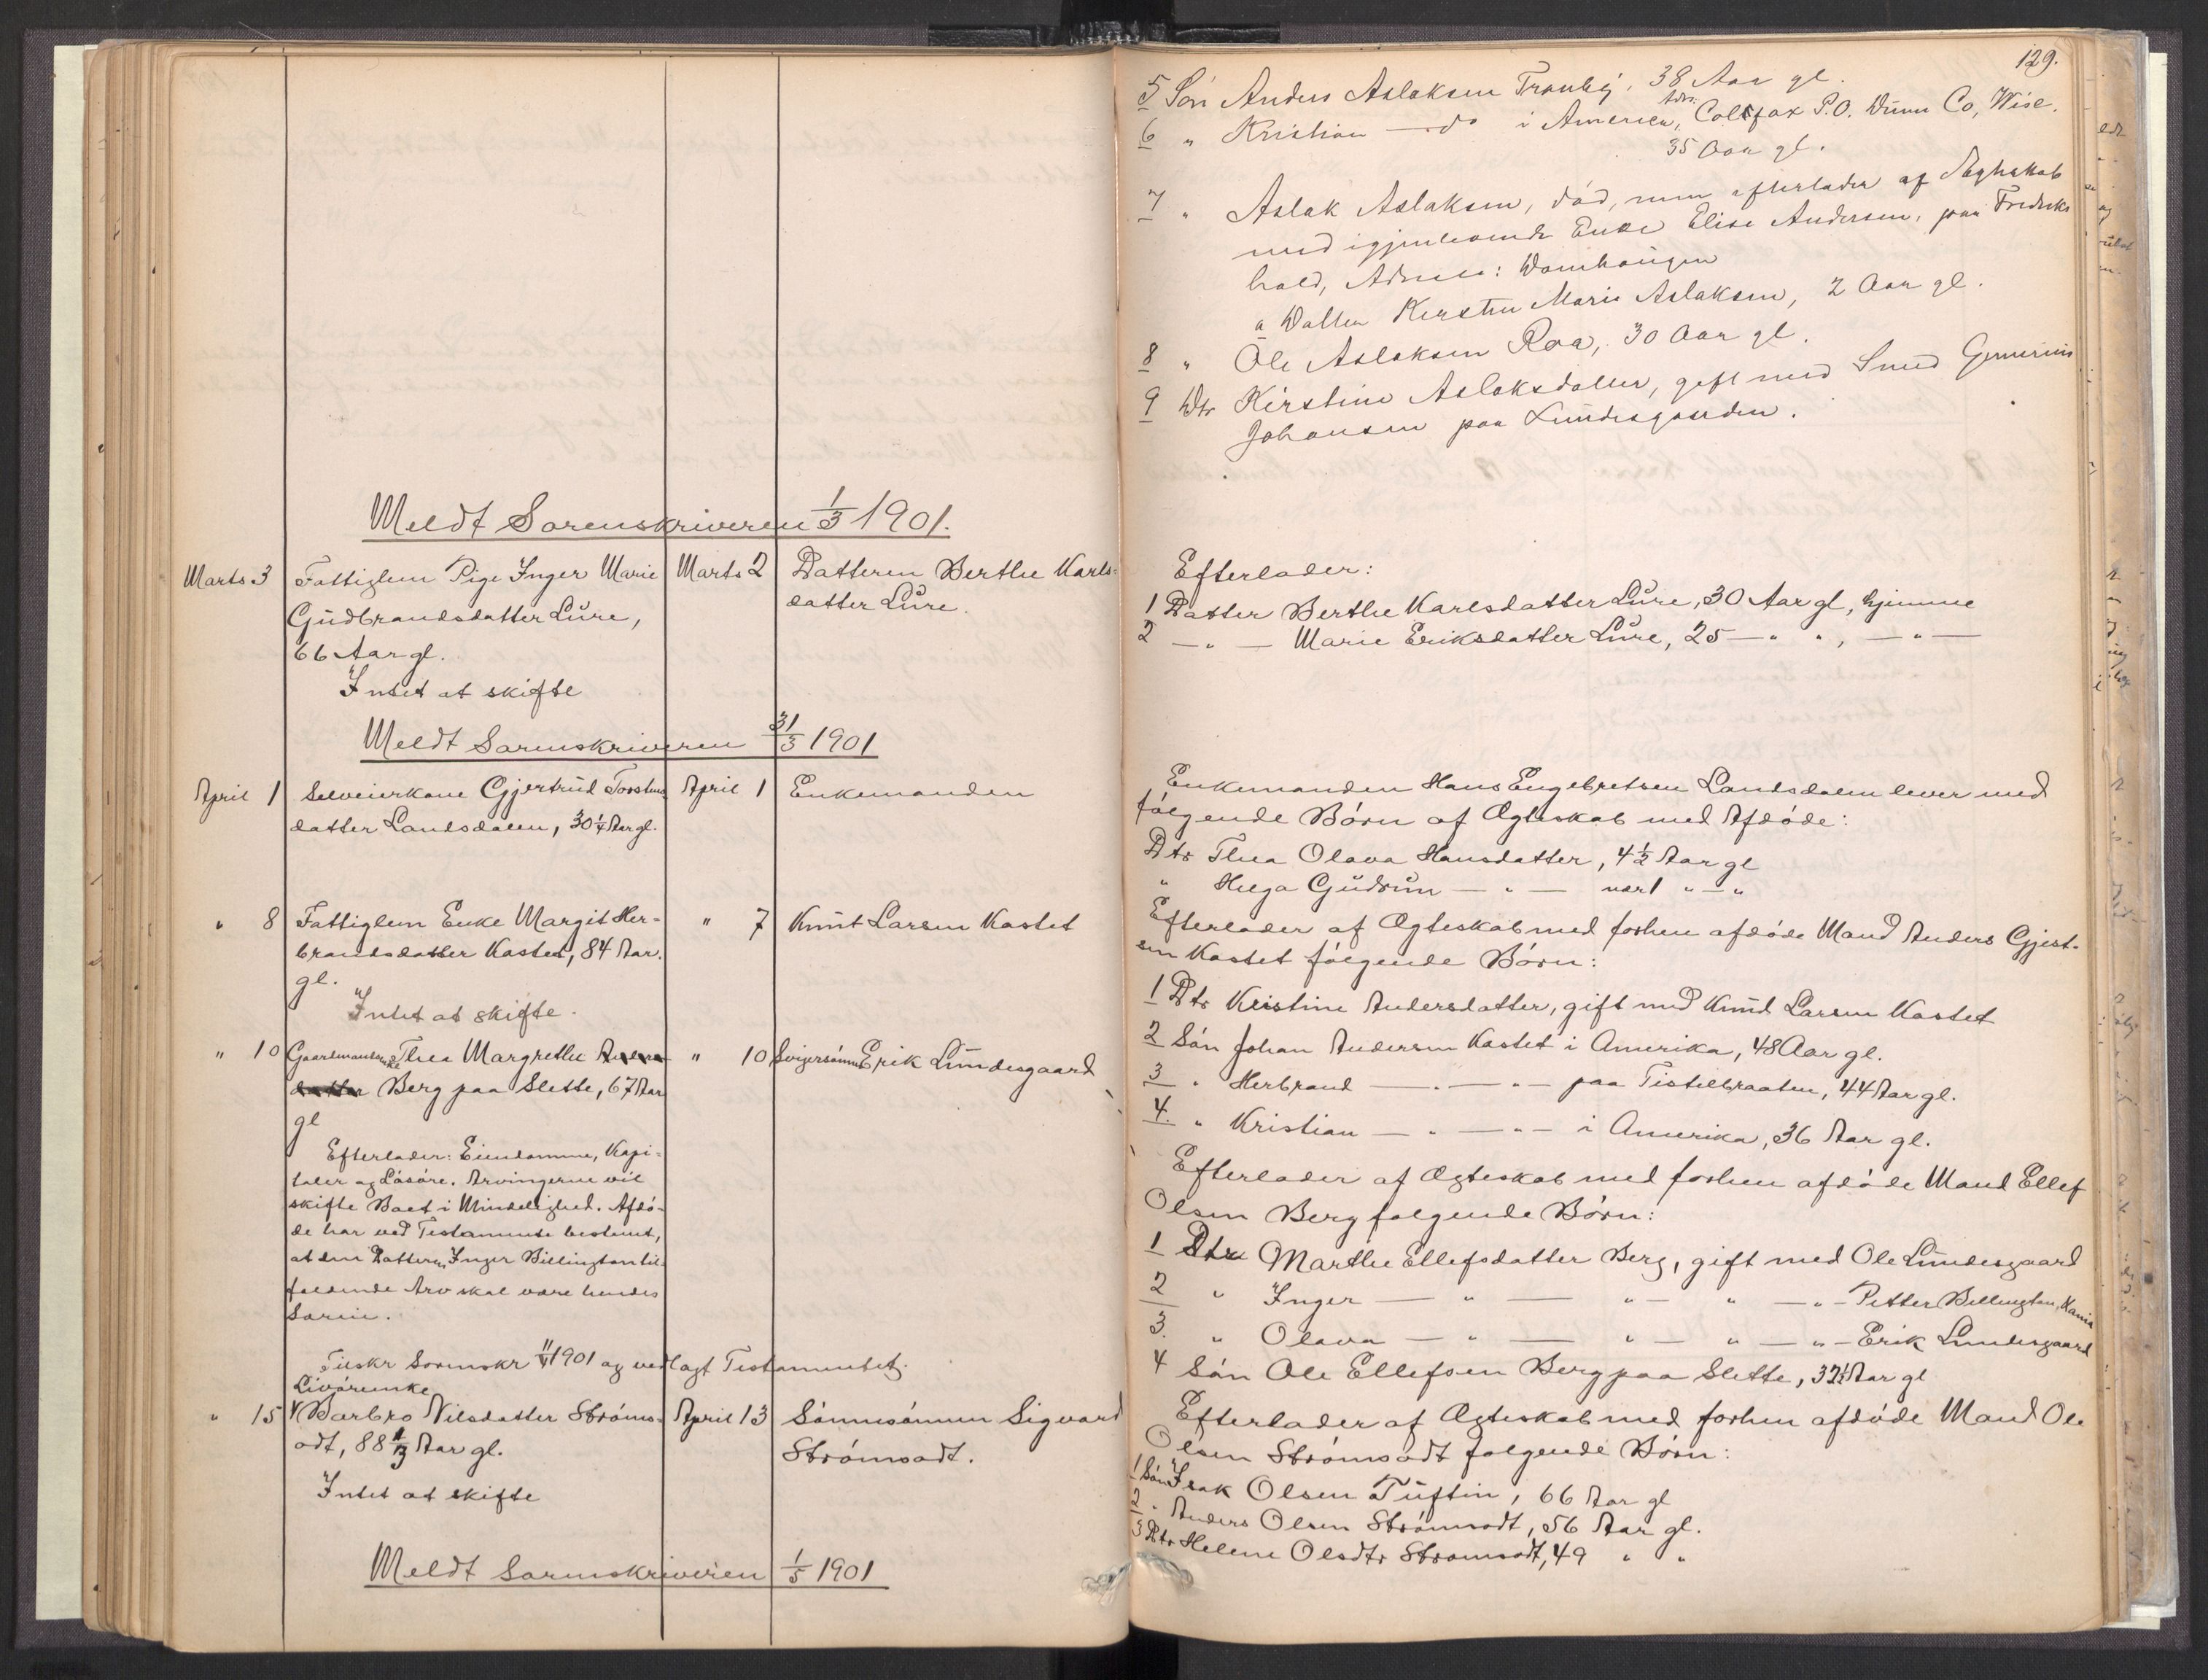 Meldt Sorenskriveren 1/3 1901.
Marts 3 Fattiglem Pige Inger Marie Marts 2 Datteren Berthe Karls-
Gudbrandsdatter Lure, datter Lure.
66 Aar gl.
Intet at skifte
Meldt Sorenskriveren 31/3 1901
April 1 Selveierkone Gjertrud Torstens April 1 Enkemanden
datter Landsdalen, 30 1/4 Aar gl.
" 8 Fattiglem Enke Margit Her- " 7 Knut Larsen Kastet
brandsdatter Kastet, 84 Aar.
gl.
Intet at skifte.
" 10 Thea Margrethe " 10 Svigersønnen Erik Lundesgaard
datter Berg paa Slette, 67 Aar
gl
Efterlader: Eiendomme, Kapi-
taler og Løsøre. Arvingerne vil
skifte Boet i Mindelighed. Afdø-
de har ved Testamente bestemt,
at den Datteren Inger Billington til-
faldende Arv skal være hendes
Særeie.
Tilskr Sorenskr 11/4 1901 og vedlagt Testamentet.
Livøreenke
" 15 Barbro Nilsdatter Strøms- April 13 Sønnesønnen Sigvard
odt, 88 1/3 Aar gl. Strømsodt.
Intet at skifte
Meldt Sorenskriveren 1/5 1901
129.
5 Søn Anders Aslaksen Tranby, 38 Aar gl.
6 " Kristian — do i America, Adrs: Colfax P.O. Dunn Co, Wisc.
35 Aar gl.
7 " Aslak Aslaksen, død, men efterlader af Ægteskab
med igjenlevende Enke Elise Andersen, paa Fredriks
hald, Adresse: Damhaugen
a Datter Kersten Marie Aslaksen, 2 Aar gl.
8 " Ole Aslaksen Roa, 30 Aar gl.
9 Dtr Kirstine Aslaksdatter, gift med Smed Gunerius
Johansen paa Lundesgaarden.
Efterlader:
1 Datter Berthe Karlsdatter Lure, 30 Aar gl, hjemme
2 — " — Marie Eriksdatter Lure, 25 — " ", — " —
Enkemanden Hans Engebretsen Landsdalen lever med
følgende Børn af Ægteskab med Afdøde:
Dtr Thea Olava Hansdatter, 4 1/2 Aar gl
" Helga Gudrun — " — nær 1 " — "
Efterlader af Ægteskab med forhen afdøde Mand Anders Gjest-
sen Kastet følgende Børn:
1 Dtr Kristine Andersdatter, gift med Knud Larsen Kastet
2 Søn Johan Andersen Kastet i Amerika, 48 Aar gl.
3 " Herbrand — " — " — paa Tistelbraaten, 44 Aar gl.
4. " Kristian — " — " — i Amerika, 36 Aar gl.
Efterlader af Ægteskab med forhen afdøde Mand Ellef
Olsen Berg følgende Børn:
1 Dtr Marthe Ellefsdatter Berg, gift med Ole Lundesgaard
2 " Inger — " — " — " — " — Petter Billington,
3. " Olava — " — " — " — " — Erik Lundesgaard
4 Søn Ole Ellefsen Berg paa Slette, 32 1/2 Aar gl
Efterlader af Ægteskab med forhen afdøde Mand Ole
Olsen Strømsodt følgende Børn:
1 Søn Isak Olsen Tuftin, 66 Aar gl
2 " Anders Olsen Strømsodt, 56 Aar gl.
3 Dtr Helene Olsdtr Strømsodt, 49 " "